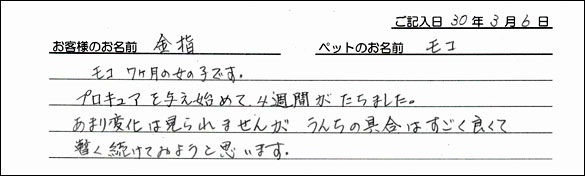 ご記入日 30年3月6日
お客様のお名前 金指 ペットのお名前 モコ
モコ 7ヶ月の女の子です。
プロキュアを与え始めて、4週間がたちました。
あまり変化は見られませんが うんちの具合はすごく良くて
暫く続けてみようと思います。